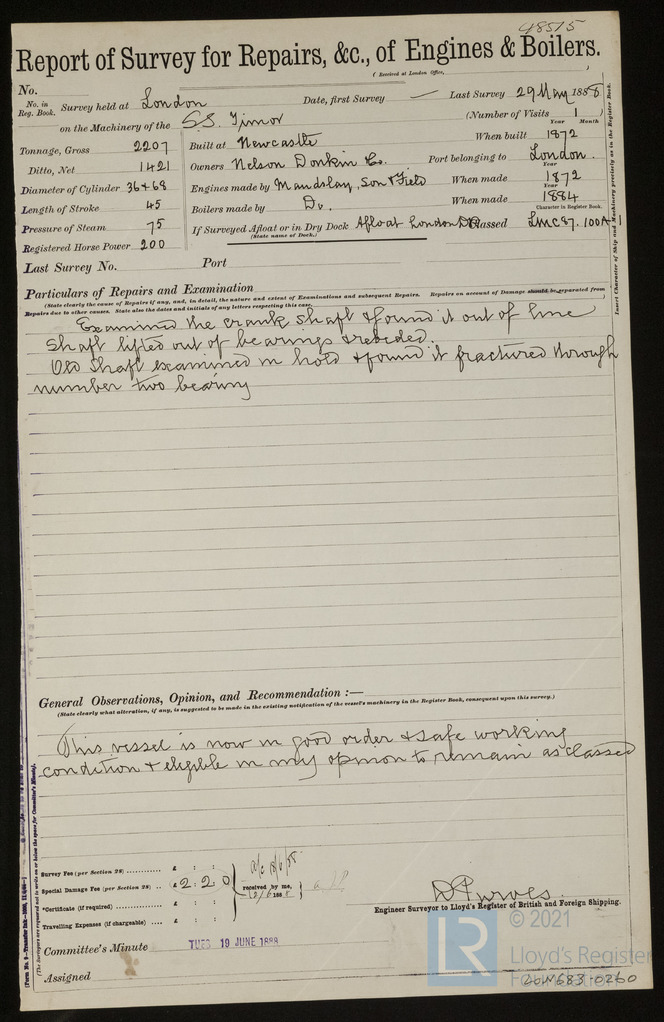 48515
Report of Survey for Repairs, &c., of Engines & Boilers.
(Received at London Office,
No.
No. in Reg. Book. Survey held at London Date, first Survey — Last Survey 29 May 1888
on the Machinery of the S.S. Timor (Number of Visits 1)
Tonnage, Gross 2207
Ditto, Net 1421
Diameter of Cylinder 36 & 68
Length of Stroke 45
Pressure of Steam 75
Registered Horse Power 200
Built at Newcastle When built 1872 Year Month
Owners Nelson Donkin Co. Port belonging to London.
Engines made by Maudslay, Son & Field When made 1872 Year
Boilers made by Do. When made 1884 Year
If Surveyed Afloat or in Dry Dock Afloat London Classed LMC 87. 100A1
(State name of Dock.)
Character in Register Book.
Insert Character of Ship and Machinery precisely as in the Register Book.
Last Survey No. Port
Particulars of Repairs and Examination
(State clearly the cause of Repairs if any, and, in detail, the nature and extent of Examinations and subsequent Repairs. Repairs on account of Damage should be separated from
Repairs due to other causes. State also the dates and initials of any letters respecting this case.
Examined the crank shaft & found it out of line
Shaft lifted out of bearings & rebeded.
Old Shaft examined in hold & found it fractured through
number two bearing
General Observations, Opinion, and Recommendation :—
(State clearly what alteration, if any, is suggested to be made in the existing notification of the vessel's machinery in the Register Book, consequent upon this survey.)
This vessel is now in good order & safe working
condition & eligible in my opinion to remain as classed
Survey Fee (per Section 28) £ : :
Special Damage Fee (per Section 28) £ 2 : 2 : 0
*Certificate (if required) £ : :
Travelling Expenses (if chargeable) £ : :
a/c 18/6/88
received by me,
D Purves.
Engineer Surveyor to Lloyd's Register of British and Foreign Shipping.
Committee's Minute TUES 19 JUNE 1888
Assigned
(The Surveyors are requested not to write on or below the space for Committee's Minute).
© 2021
LR
Lloyd's Register
Foundation
LON683-0260